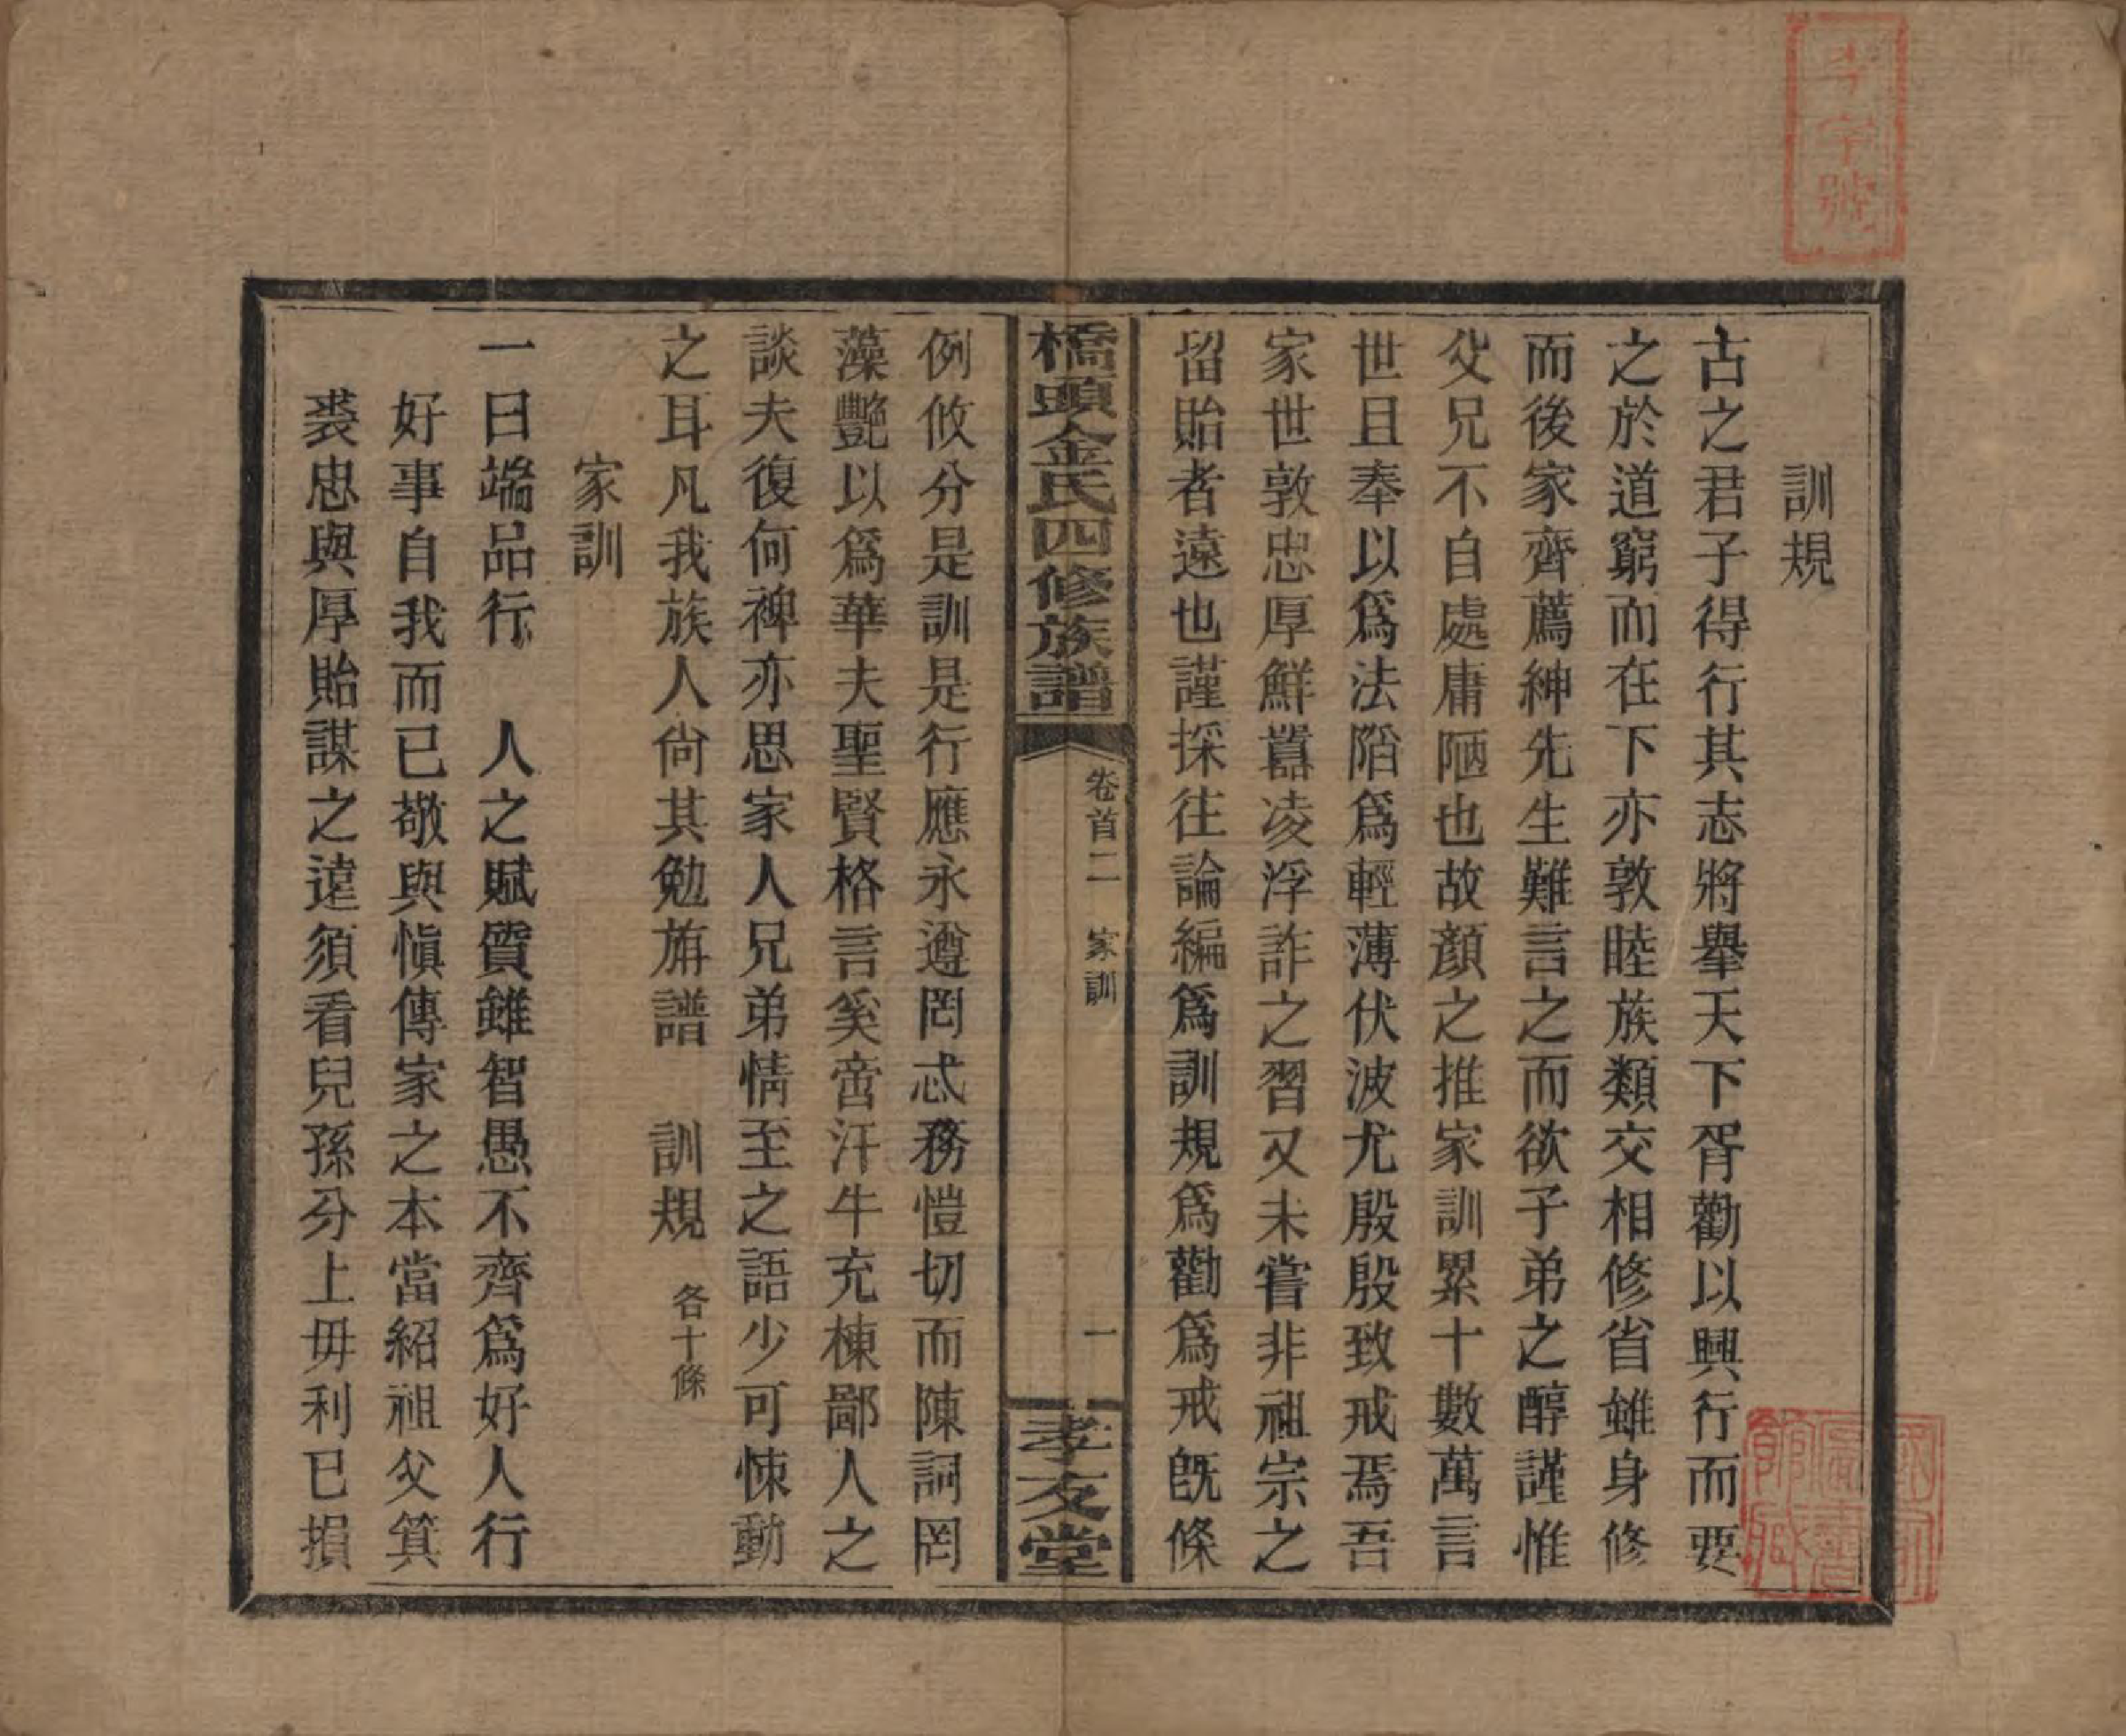 訓規
古之君子得行其志將舉天下胥勸以興行而要
之於道窮而在下亦敦睦族類交相修省雖身修
而後家齊薦紳先生難言之而欲子弟之醇謹惟
父兄不自處庸陋也故顏之推家訓累十數萬言
世且奉以爲法陷爲輕薄伏波尤殷殷致戒焉吾
家世敦忠厚鮮囂凌浮詐之習又未嘗非祖宗之
留貽者遠也謹採往論編爲訓規爲勸爲戒旣條
橋頭金氏四修族譜
卷首二 家訓
一
孝友堂
例攸分是訓是行應永遵罔忒務愷切而陳詞罔
藻艷以爲華夫聖賢格言奚啻汗牛充棟鄙人之
談夫復何裨亦思家人兄弟情至之語少可悚動
之耳凡我族人尙其勉旃譜 訓規 各十條
家訓
一曰端品行 人之賦質雖智愚不齊爲好人行
好事自我而已敬與愼傳家之本當紹祖父箕
裘忠與厚貽謀之遠須看兒孫分上毋利已損
字號
國家圖書館藏